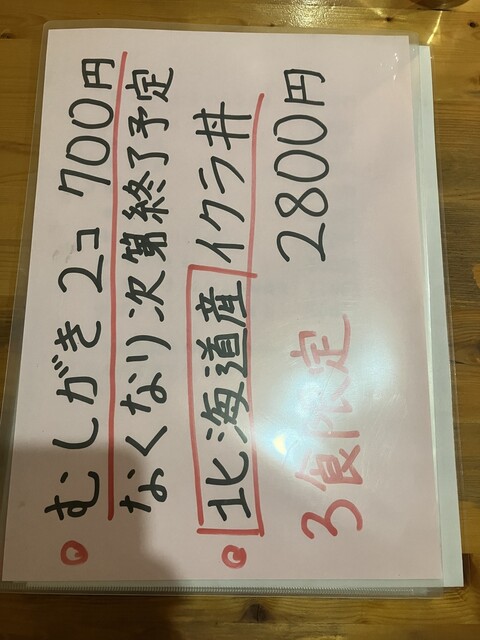 むしがき2コ 700円
なくなり次第終了予定
北海道産イクラ丼
2800円
3食限定